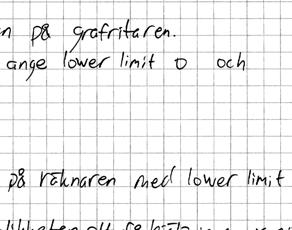 n på grafritaren.
ange lower limit 0 och
på räknaren med lower limit